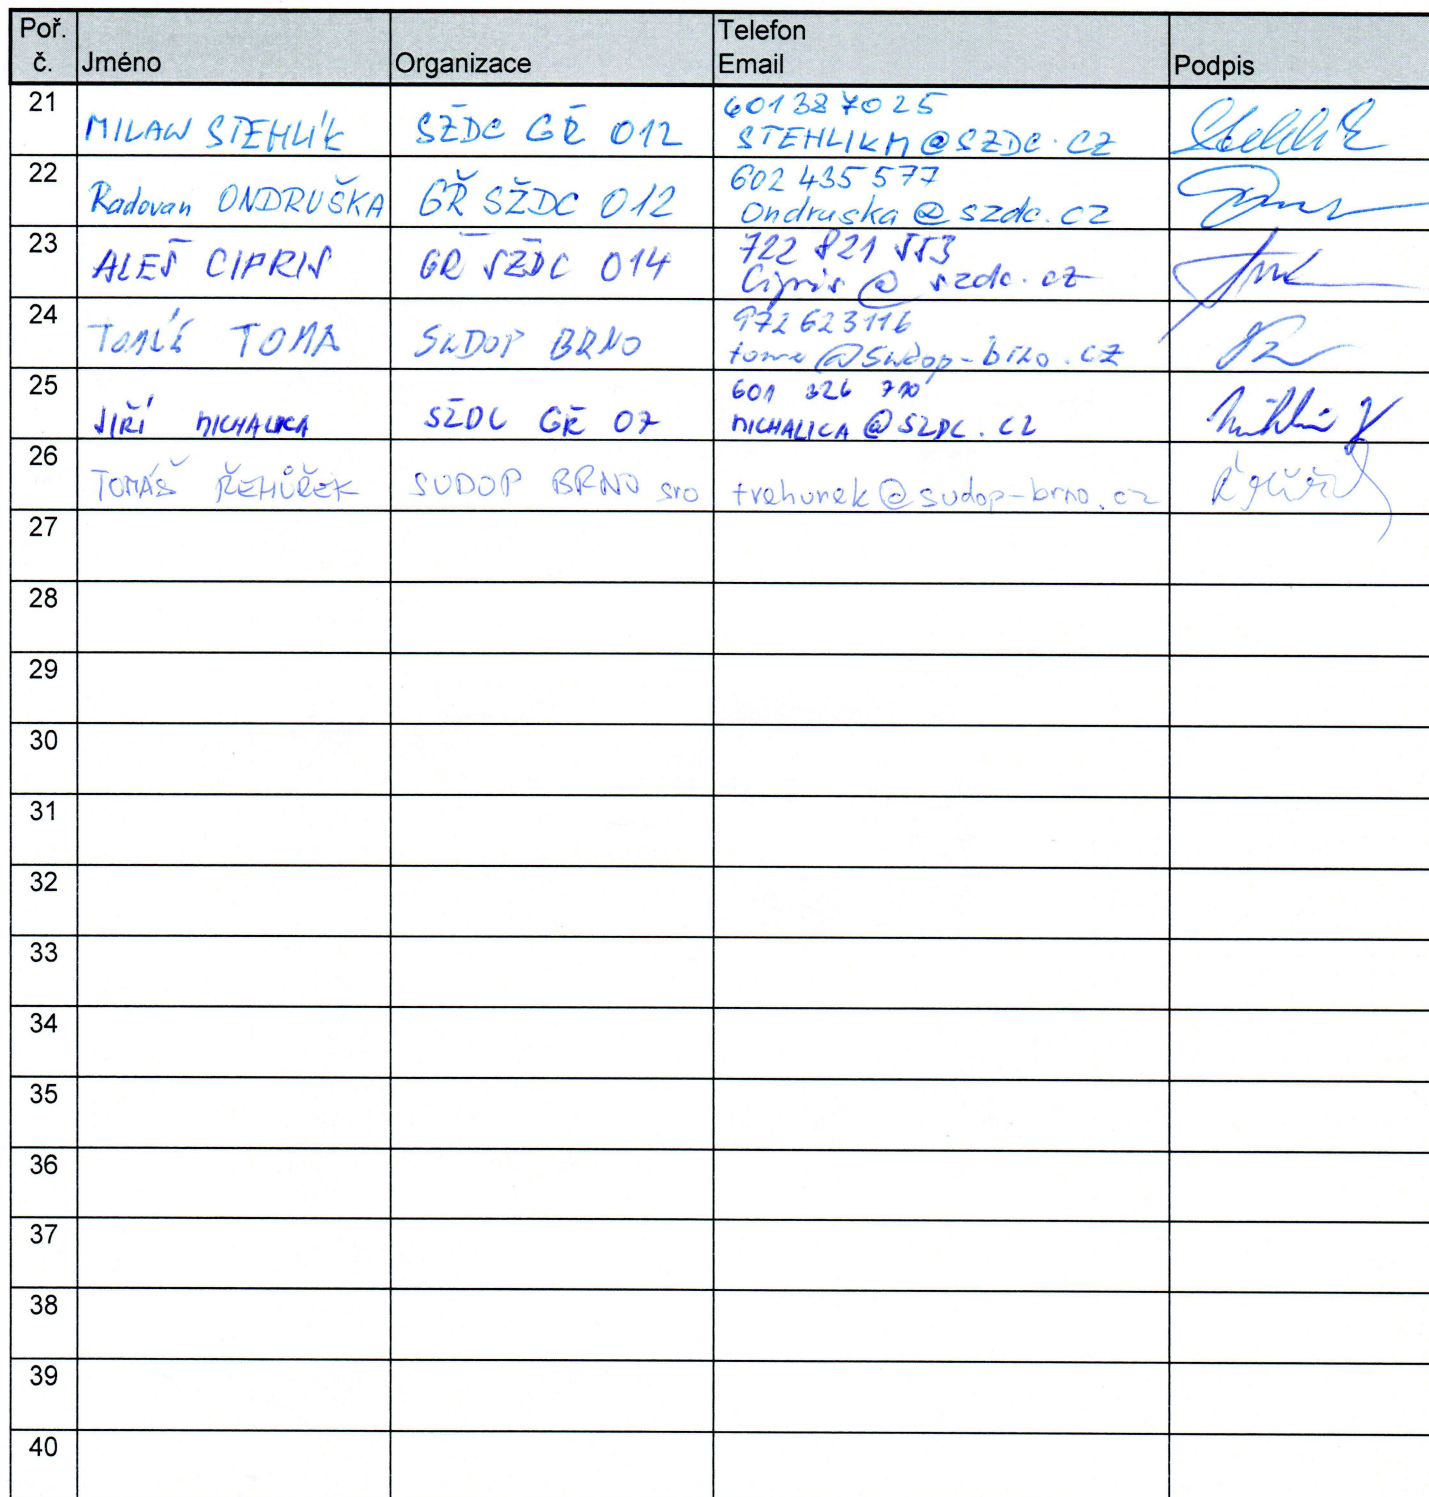 Poř. č. Jméno Organizace Telefon Email Podpis
21 MILAN STEHLÍK SŽDC GŘ 012 601387025
STEHLIKM@SZDC.CZ
22 Radovan ONDRUŠKA GŘ SŽDC 012 602 435 577
Ondruska@szdc.cz
23 ALEŠ CIPRIS GŘ SŽDC 014 722 821 553
Cipris@szdc.cz
24 TOMÁŠ TOMA SUDOP BRNO 972623116
toma@sudop-brno.cz
25 JIŘÍ MICHALICA SŽDC GŘ 07 601 326 710
MICHALICA@SZDC.CZ
26 TOMÁŠ ŘEHŮŘEK SUDOP BRNO sro trehurek@sudop-brno.cz
27
28
29
30
31
32
33
34
35
36
37
38
39
40